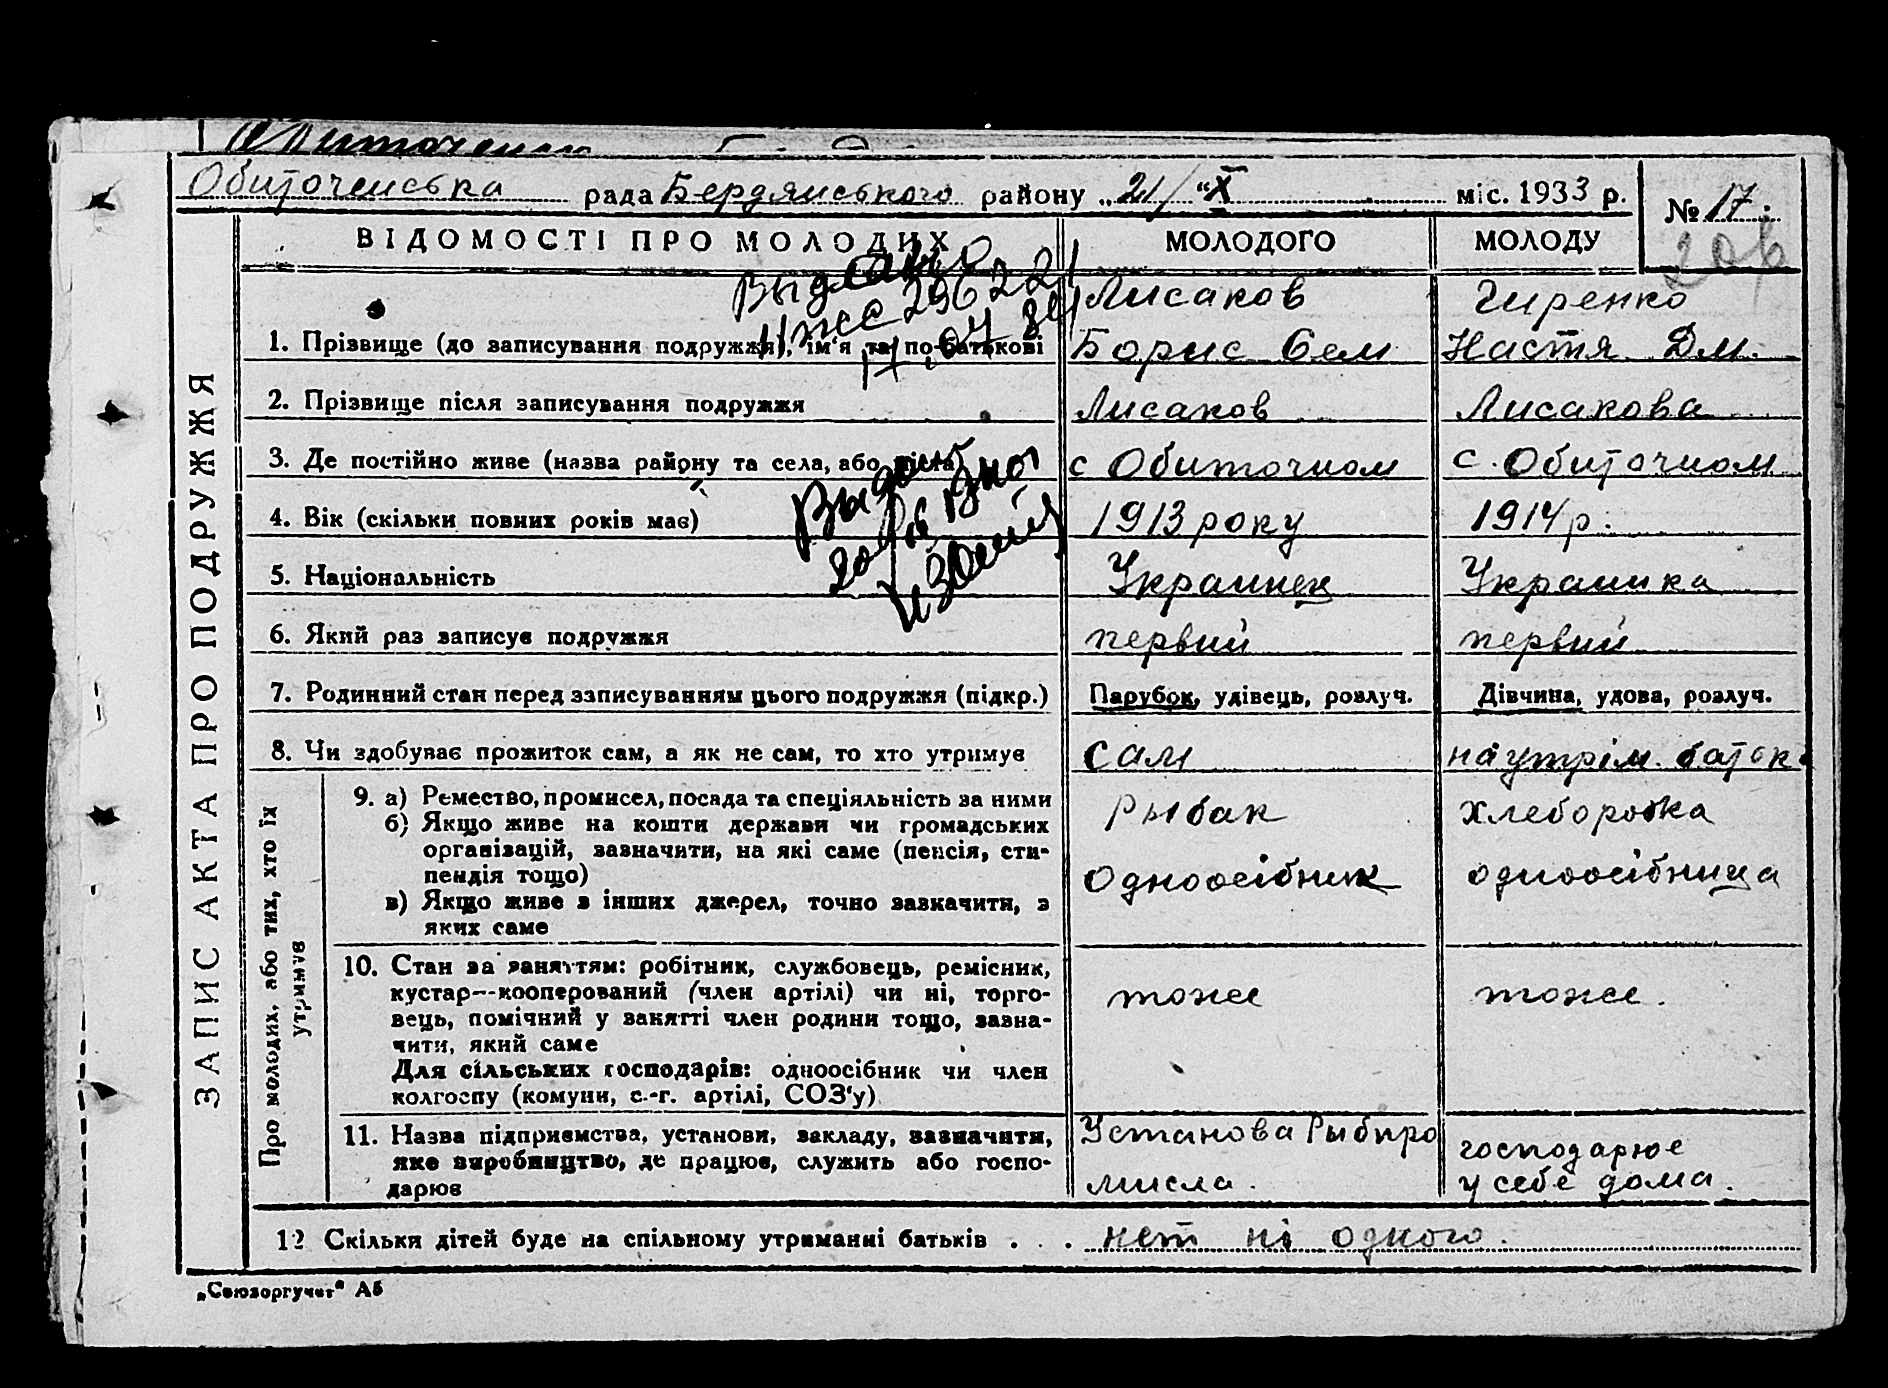 Обиточенська рада Бердянського району „21/“ X міс. 1933 р.
№ 17.
ВІДОМОСТІ ПРО МОЛОДИХ
МОЛОДОГО
МОЛОДУ
ЗАПИС АКТА ПРО ПОДРУЖЖЯ
1. Прізвище (до записування подружжя), ім'я та по-батькові
Лисаков
Борис Сем
Чиренко
Настя Дм.
2. Прізвище після записування подружжя
Лисаков
Лисакова
3. Де постійно живе (назва району та села, або міста)
с Обиточном
с. Обиточном
4. Вік (скільки повних років має)
1913 року
1914 р.
5. Національність
Украинец
Украинка
6. Який раз записує подружжя
первий
первий
7. Родинний стан перед записуванням цього подружжя (підкр.)
Парубок, удівець, розлуч.
Дівчина, удова, розлуч.
8. Чи здобуває прожиток сам, а як не сам, то хто утримує
сам
на утрім. баток
Про молодих, або тих, хто їх
утримує
9. а) Ремество, промисел, посада та спеціяльність за ними
б) Якщо живе на кошти держави чи громадських
організацій, зазначити, на які саме (пенсія, сти-
пендія тощо)
в) Якщо живе з інших джерел, точно зазначити, з
яких саме
Рыбак
одноосібник
хлеборобка
одноосібница
10. Стан за заняттям: робітник, службовець, ремісник,
кустар—кооперований (член артілі) чи ні, торго-
вець, помічний у занятті член родини тощо, зазна-
чити, який саме
Для сільських господарів: одноосібник чи член
колгоспу (комуни, с.-г. артілі, СОЗ'у)
тоже
тоже.
11. Назва підприємства, установи, закладу, зазначити,
яке виробництво, де працює, служить або госпо-
дарює
Установа Рыбпро
мисла.
господарює
у себе дома.
12 Скільки дітей буде на спільному утриманні батьків . . .
нет ні одного.
Выдано
„Союзоргучет“ А5